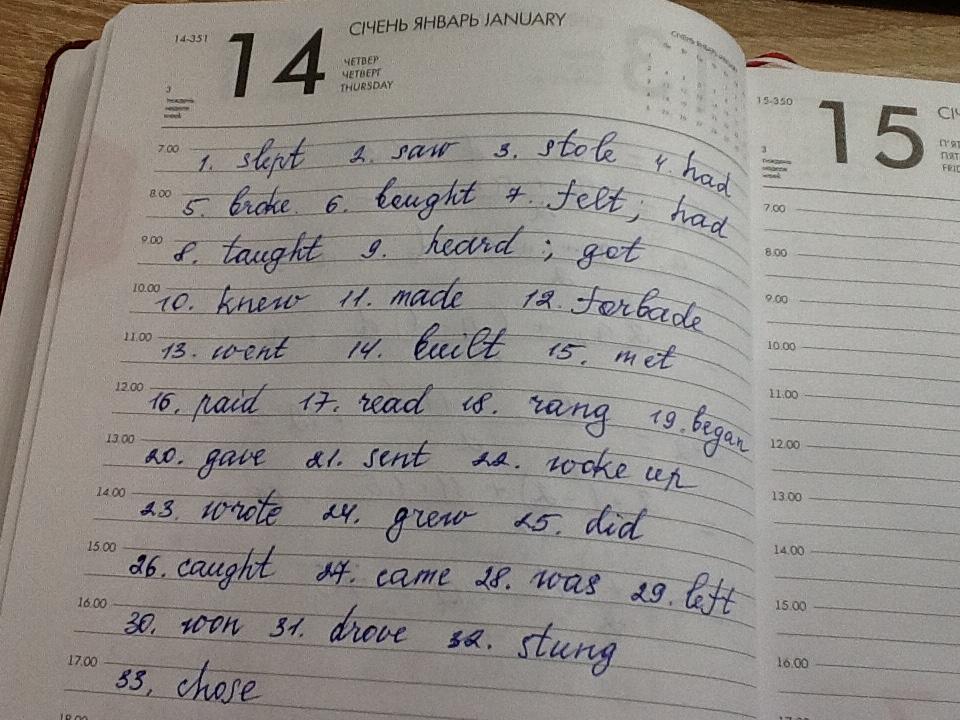 14-351
14
СІЧЕНЬ ЯНВАРЬ JANUARY
ЧЕТВЕР
ЧЕТВЕРГ
THURSDAY
3
тиждень
неделя
week
7.00 1. slept 2. saw 3. stole 4. had
8.00 5. broke 6. bought 7. felt; had
9.00 8. taught 9. heard; got
10.00 10. knew 11. made 12. forbade
11.00 13. went 14. built 15. met
12.00 16. paid 17. read 18. rang 19. began
13.00 20. gave 21. sent 22. woke up
14.00 23. wrote 24. grew 25. did
15.00 26. caught 27. came 28. was 29. left
16.00 30. won 31. drove 32. stung
17.00 33, chose
18.00
15-350
15
3
7.00
8.00
9.00
10.00
11.00
12.00
13.00
14.00
15.00
16.00